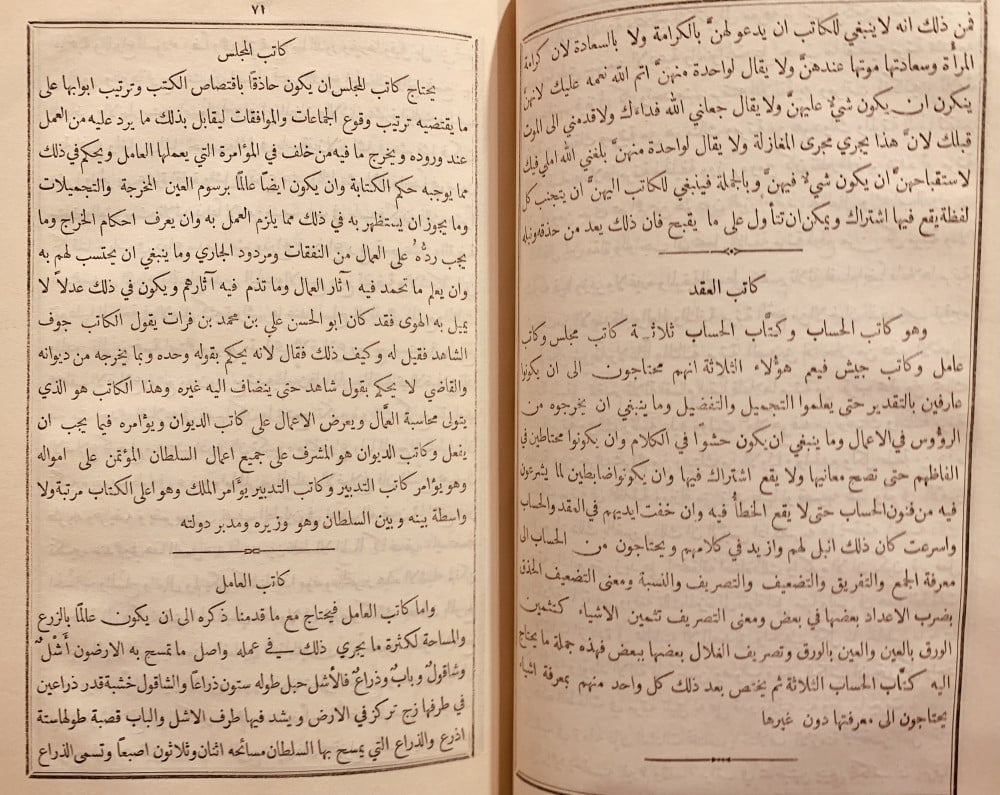 فمن ذلك انه لاينبغي للكاتب ان يدعو لهنَّ بالكرامة ولا بالسعادة لان كرامة
المرأة وسعادتها موتها عندهنَّ ولا يقال لواحدة منهنَّ اتم الله نعمه عليك لانهنَّ
ينكرن ان يكون شيءٌ عليهنَّ ولا يقال جعلني الله فداءك ولا قدمني الى الموت
قبلك لانَّ هذا يجري مجرى المغازلة ولا يقال لواحدة منهنَّ بلغني الله املي فيك
لاستقباحهنَّ ان يكون شيءٌ فيهنَّ وبالجملة فينبغي للكاتب اليهنَّ ان يتجنب كل
لفظة يقع فيها اشتراك ويمكن ان تتأول على ما يقبح فان ذلك يعد من حذقه ونبله
كاتب العقد
وهو كاتب الحساب وكتَّاب الحساب ثلاثة كاتب مجلس وكاتب
عامل وكاتب جيش فيعم هؤلاء الثلاثة انهم محتاجون الى ان يكونوا
عارفين بالتقدير حتى يعلموا التجميل والتفضيل وما ينبغي ان يخرجوه من
الرؤوس في الاعمال وما ينبغي ان يكون حشوًا في الكلام وان يكونوا محتاطين في
الفاظهم حتى تصح معانيها ولا يقع اشتراك فيها وان يكونوا ضابطين لما يشرعون
فيه من فنون الحساب حتى لا يقع الخطأُ فيه وان خفت ايديهم في العقد والحساب
واسرعت كان ذلك انبل لهم وازيد في كلامهم ويحتاجون من الحساب الى
معرفة الجمع والتفريق والتضعيف والتصريف والنسبة ومعنى التضعيف
بضرب الاعداد بعضها في بعض ومعنى التصريف تثمين الاشياء كتثمين
الورق بالعين والعين بالورق وتصريف الغلال بعضها ببعض فهذه جملة ما يحتاج
اليه كتَّاب الحساب الثلاثة ثم يختص بعد ذلك كل واحد منهم بمعرفة اشياء
يحتاجون الى معرفتها دون غيرها
٧١
كاتب المجلس
يحتاج كاتب المجلس ان يكون حاذقًا باقتصاص الكتب وترتيب ابوابها على
ما يقتضيه ترتيب وقوع الجماعات والموافقات ليقابل بذلك ما يرد عليه من العمل
عند وروده ويخرج ما فيه من خلف في المؤامرة التي يعملها العامل ويحكم في ذلك
مما يوجبه حكم الكتابة وان يكون ايضًا عالمًا برسوم العين المخرجة والتجميلات
وما يجوز ان يستظهر به في ذلك مما يلزم العمل به وان يعرف احكام الخراج وما
يجب ردُّهُ على العمال من النفقات ومردود الجاري وما ينبغي ان يحتسب لهم به
وان يعلم ما تحمد فيه آثار العمال وما تذم فيه آثارهم ويكون في ذلك عدلاً لا
يميل به الهوى فقد كان ابو الحسن علي بن محمد بن فرات يقول الكاتب جوف
الشاهد فقيل له وكيف ذلك فقال لانه يحكم بقوله وحده وبما يخرجه من ديوانه
والقاضي لا يحكم بقول شاهد حتى ينضاف اليه غيره وهذا الكاتب هو الذي
يتولى محاسبة العمَّال ويعرض الاعمال على كاتب الديوان ويؤامره فيما يجب ان
يفعل وكاتب الديوان هو المشرف على جميع اعمال السلطان المؤتمن على امواله
وهو يؤامر كاتب التدبير وكاتب التدبير يؤَامر الملك وهو اعلى الكتاب مرتبة ولا
واسطة بينه وبين السلطان وهو وزيره ومدبر دولته
كاتب العامل
واما كاتب العامل فيحتاج مع ما قدمنا ذكره الى ان يكون عالمًا بالزرع
والمساحة لكثرة ما يجري ذلك في عمله واصل ما تمسح به الارضون أَشْلٌ
وشاقولٌ وبابٌ وذراعٌ فالأشل حبل طوله ستون ذراعًا والشاقول خشبة قدر ذراعين
في طرفها زج تركز في الارض ويشد فيها طرف الاشل والباب قصبة طولها ستة
اذرع والذراع التي يمسح بها السلطان مسائحه اثنان وثلاثون اصبعًا وتسمى الذراع